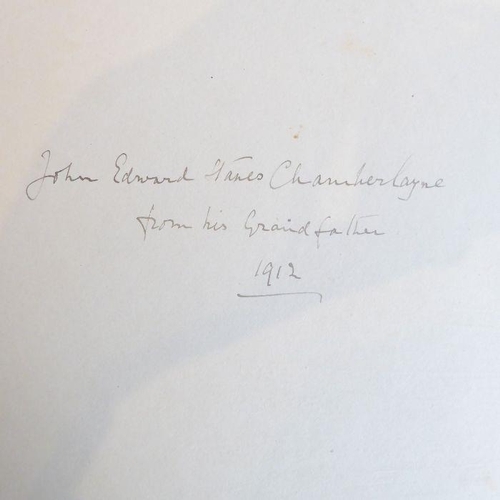 John Edward Stanes Chamberlayne
from his Grandfather
1912